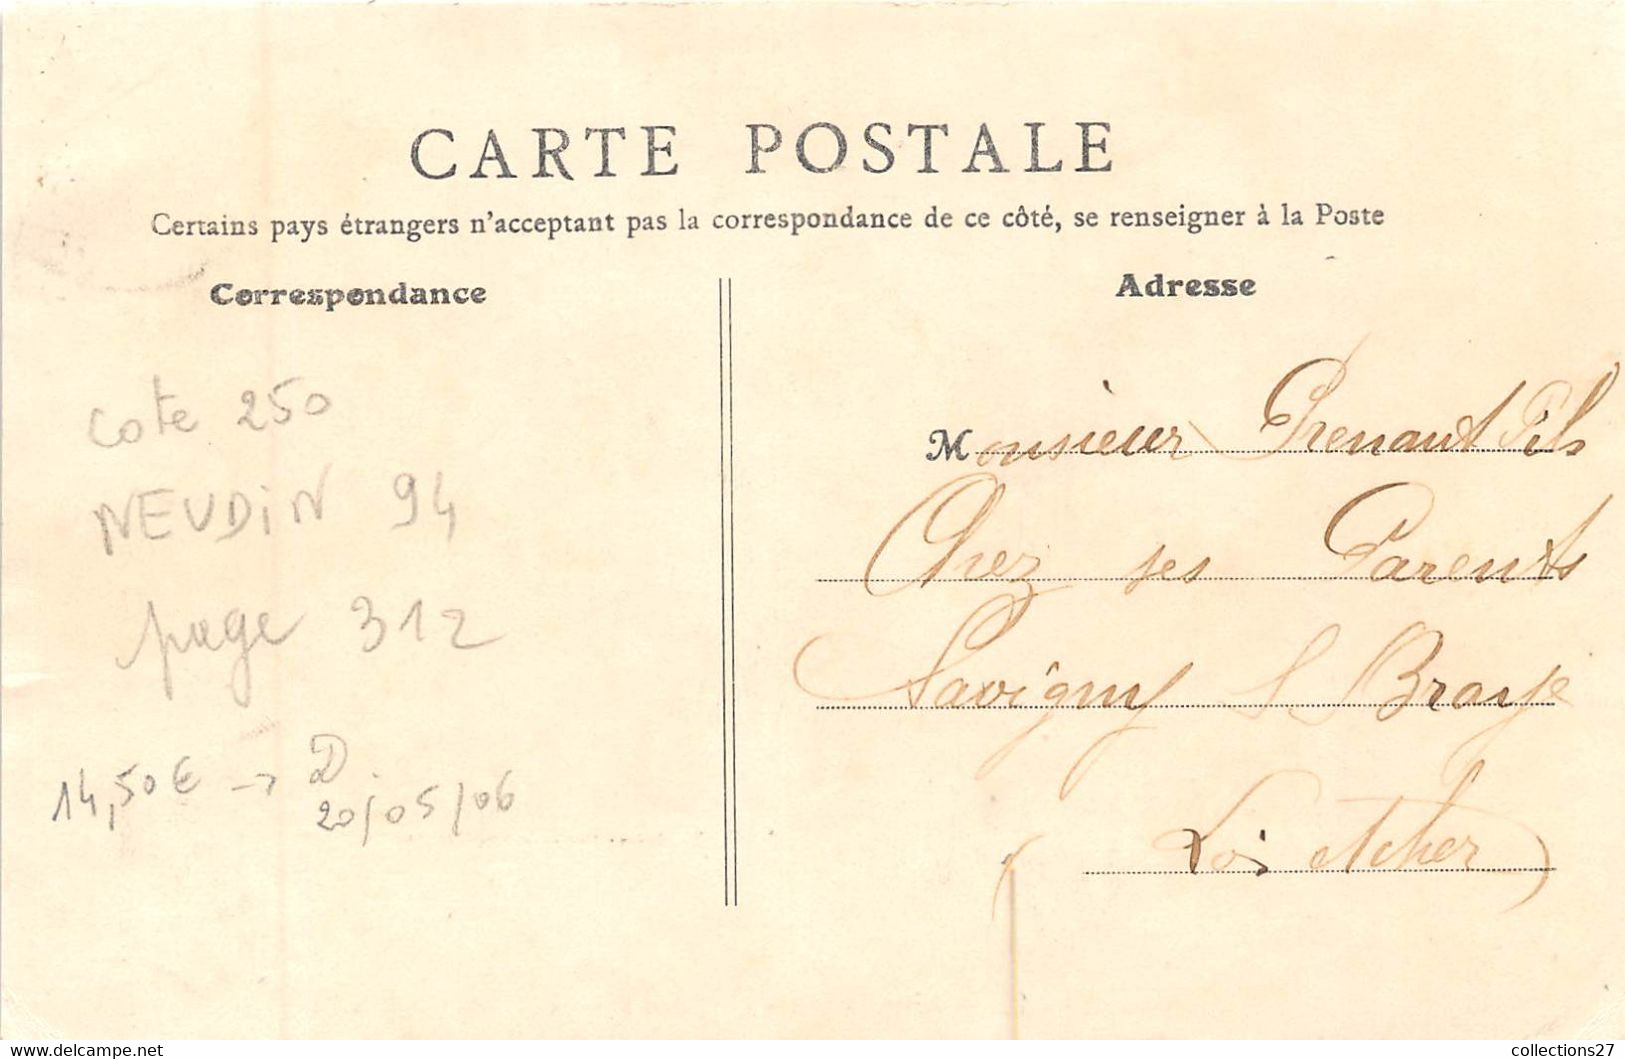 CARTE POSTALE
Certains pays étrangers n'acceptant pas la correspondance de ce côté, se renseigner à la Poste
Correspondance
Cote 250
NEUDIN 94
page 312
14,50€ → D
20/05/06
Adresse
Monsieur Prenant Fils
Chez ses Parents
Savigny S Braye
(Loir et Cher)
collections27